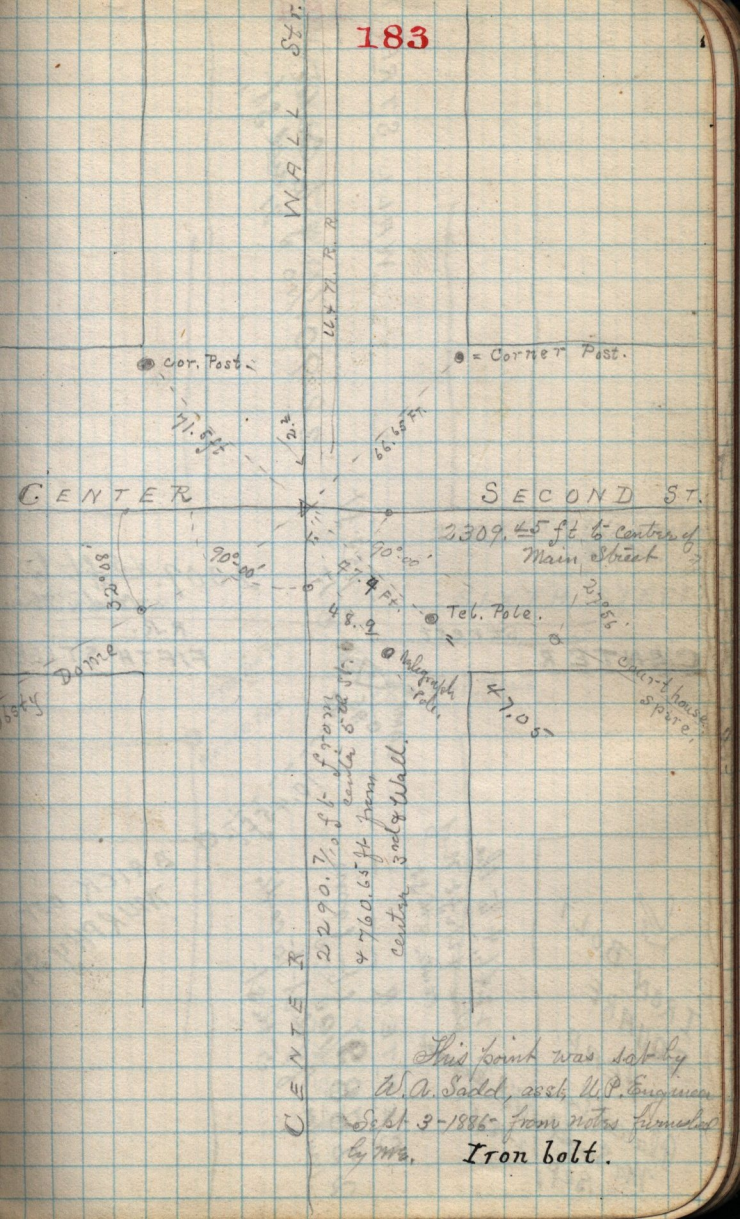 183
WALL Str.
U. & N. R. R
cor. Post.
= Corner Post.
71.5 ft
66.65 FT.
CENTER
SECOND ST.
2309.45 ft to Center of
Main Street
90°-00'
90°-00'
32°08'
47.4 Ft.
Tel. Pole.
48.9
"
27°56'
Telegraph
Pole.
Dome
Court house
Spire.
47.05
2290.7/10 ft from
center 5th St.
4760.65 ft from
center 3rd & Wall.
CENTER
This point was set by
W. A. Sadd, asst, U. P. Engineer
Sept 3-1885 from notes furnished
by me.
Iron bolt.